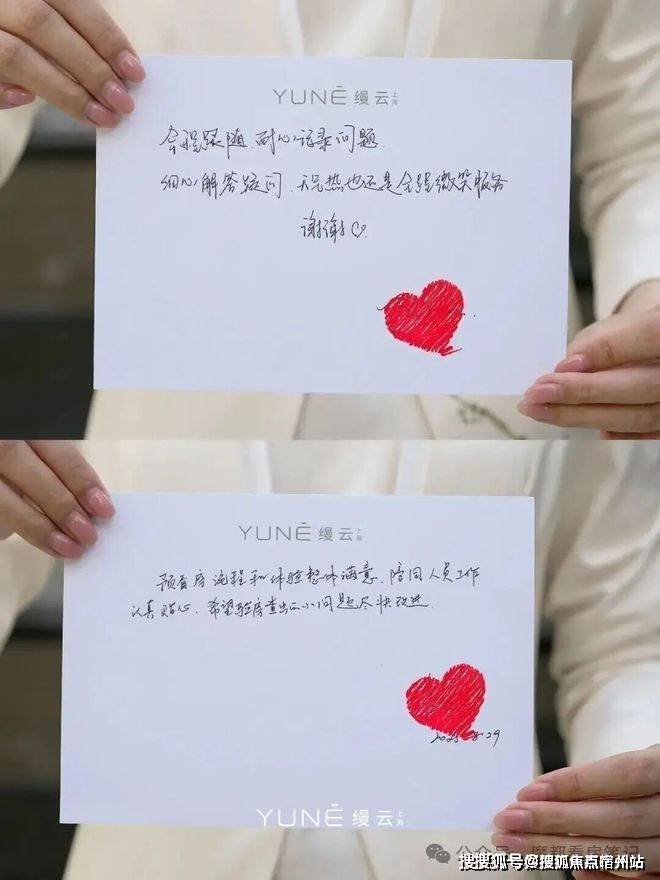 YUNÉ 缦云上海
全程跟随，耐心记录问题.
细心解答疑问，天气热也还是全程微笑服务
谢谢♡.
YUNÉ 缦云上海
预看房流程和体验整体满意，陪同人员工作
认真贴心，希望验房查出的小问题尽快改进.
29
YUNÉ 缦云上海
公众号 魔都看房笔记
搜搜狐号@搜狐焦点宿州站